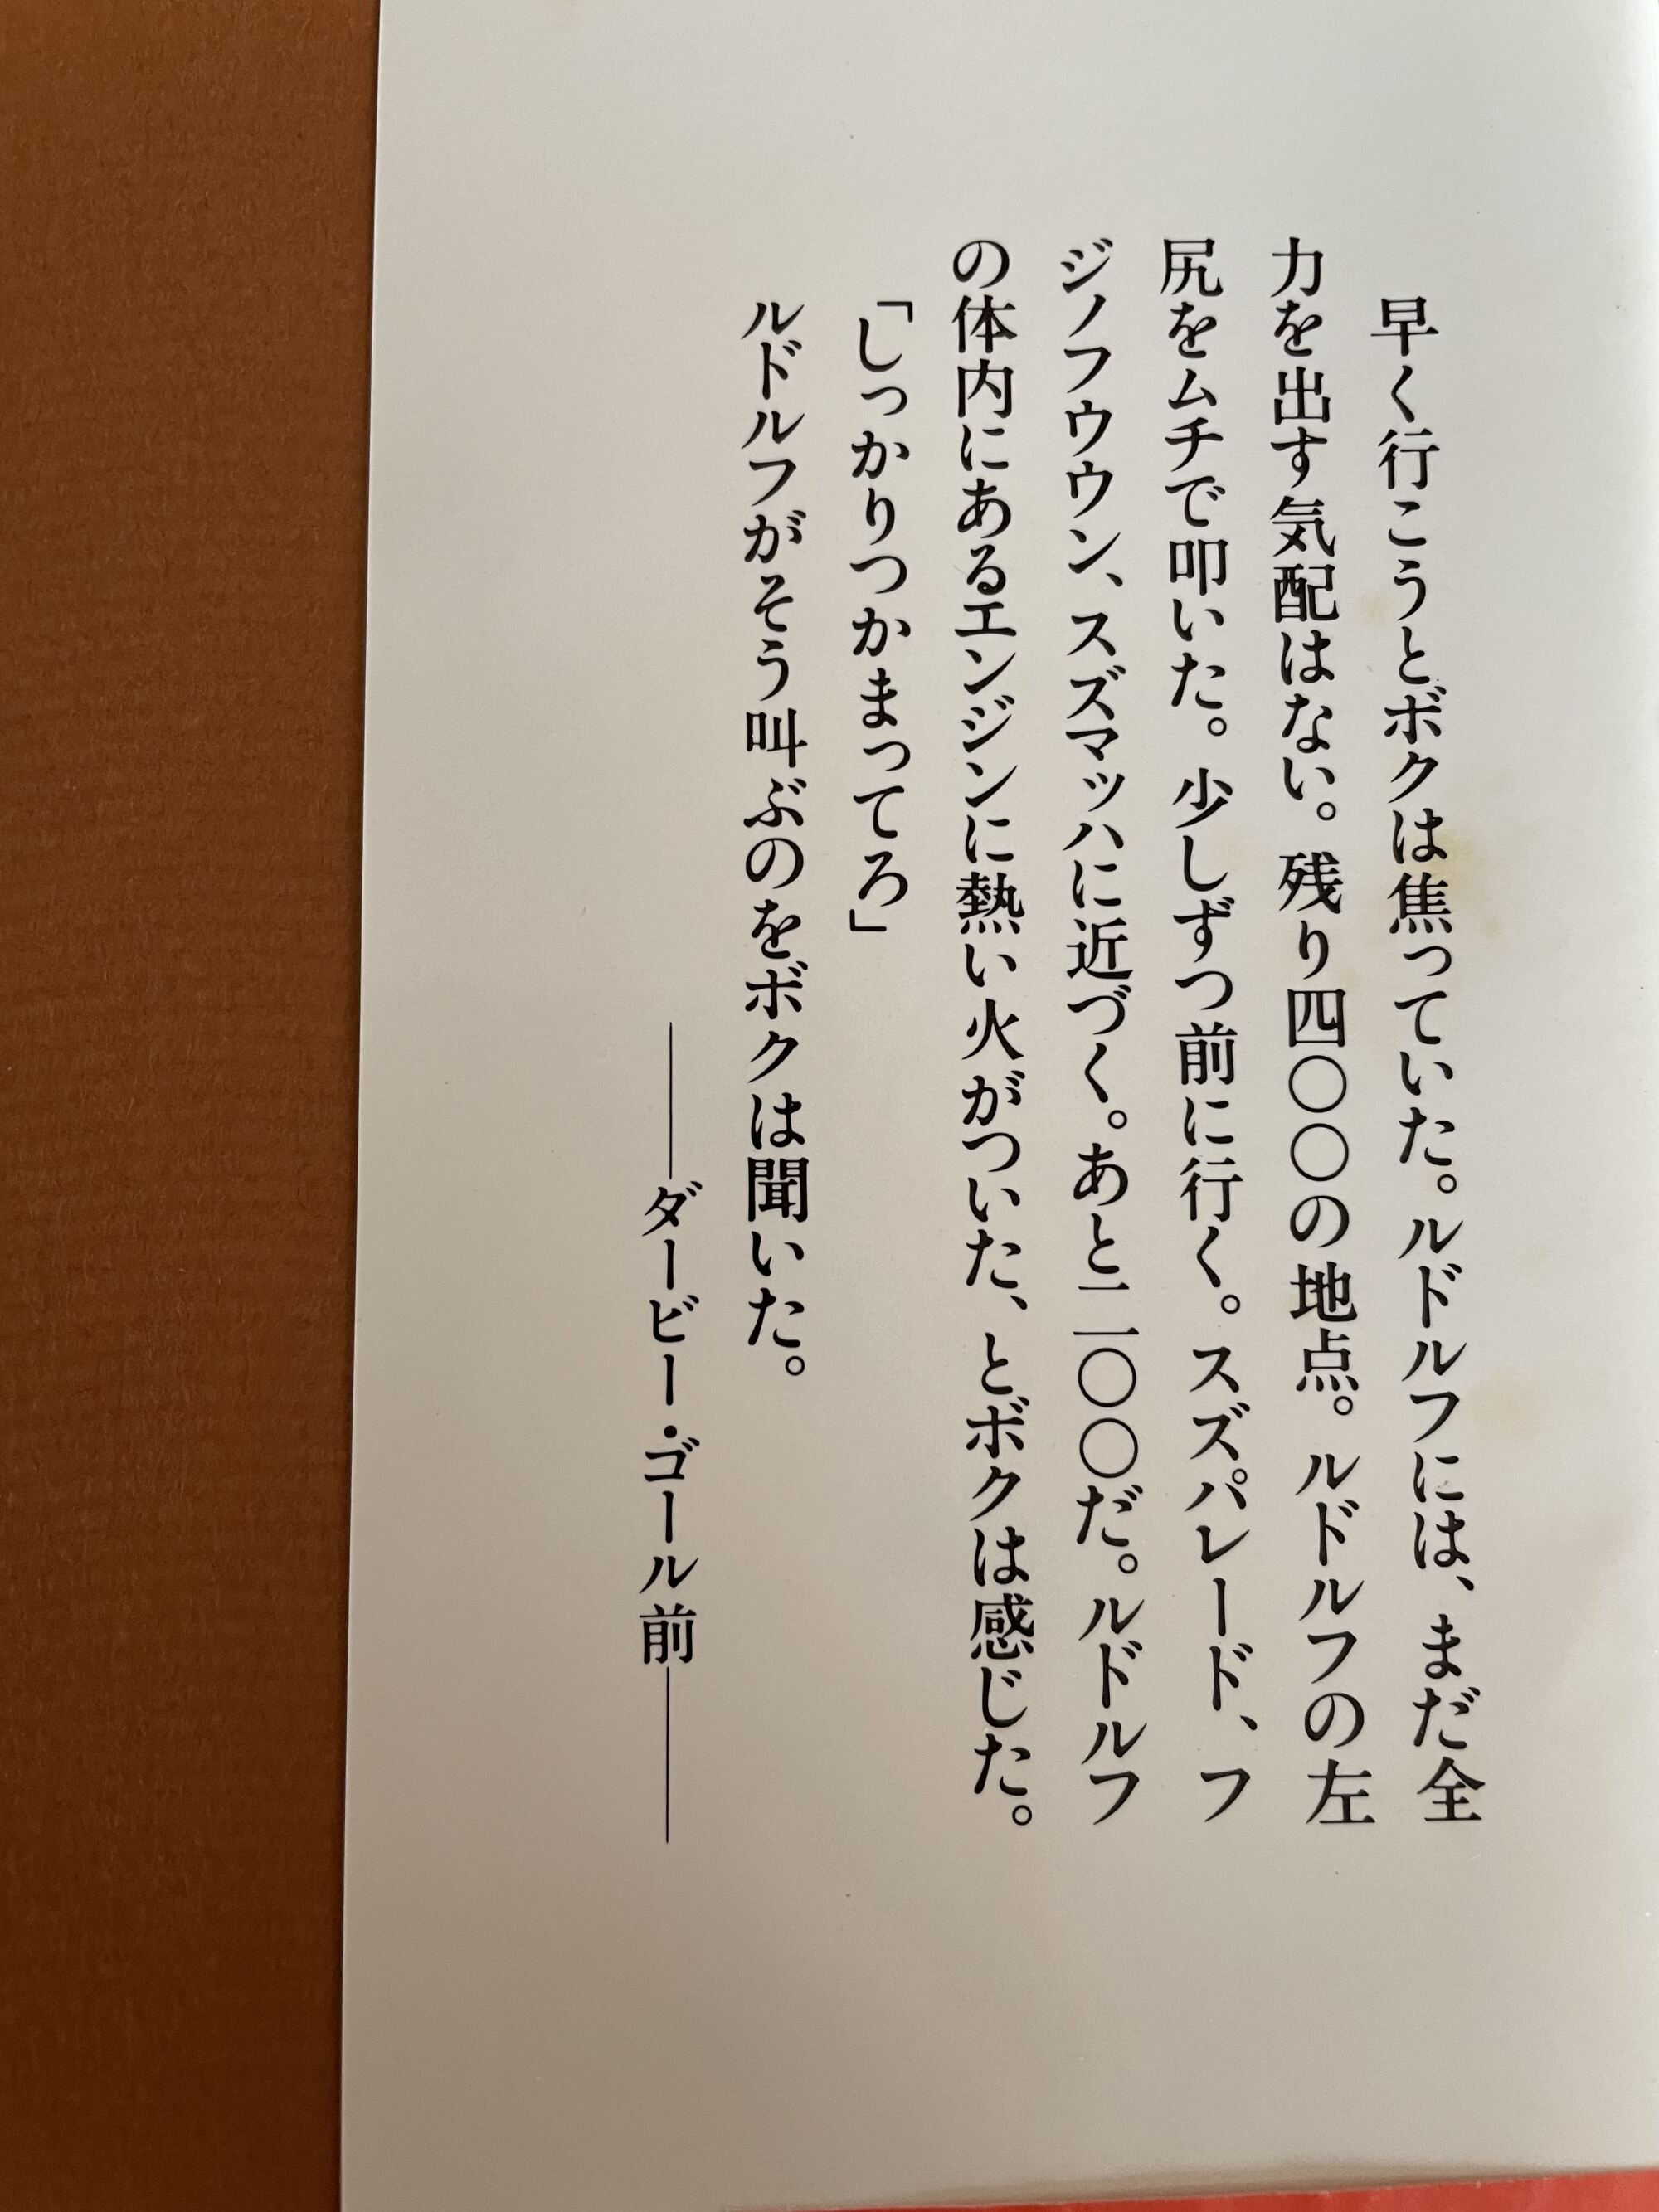 早く行こうとボクは焦っていた。ルドルフには、まだ全
力を出す気配はない。残り四〇〇の地点。ルドルフの左
尻をムチで叩いた。少しずつ前に行く。スズパレード、フ
ジノフウウン、スズマッハに近づく。あと二〇〇だ。ルドルフ
の体内にあるエンジンに熱い火がついた、とボクは感じた。
「しっかりつかまってろ」
ルドルフがそう叫ぶのをボクは聞いた。
――ダービー・ゴール前――